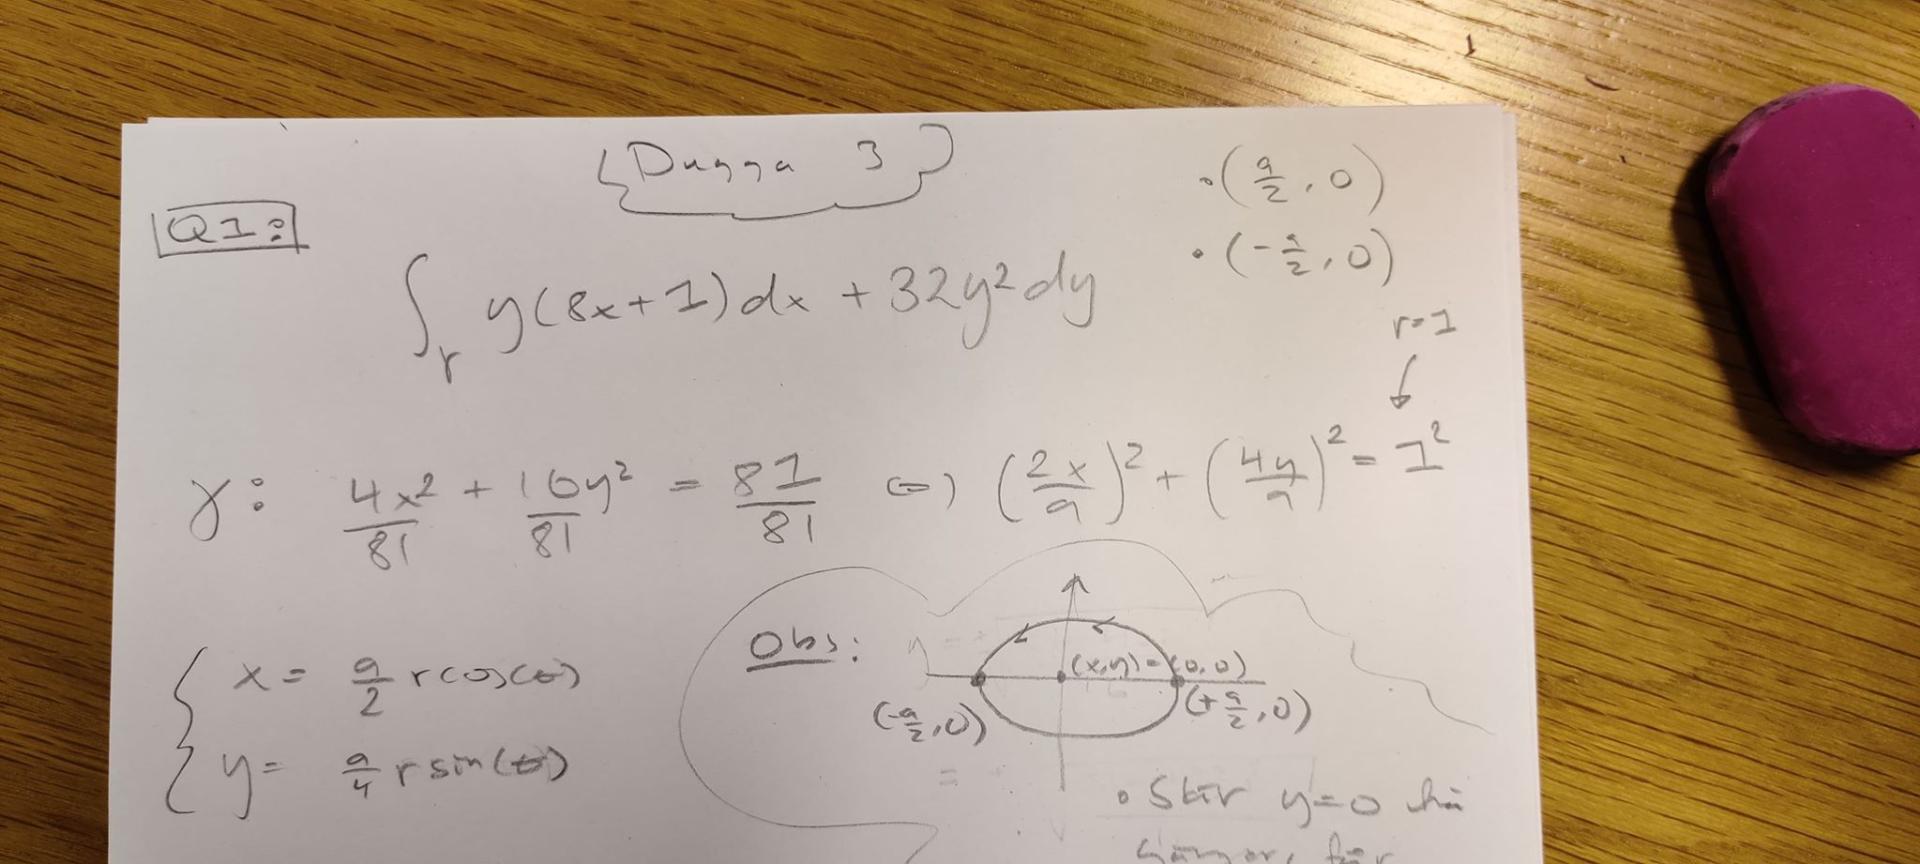 Dugga 3
Q1:
∫_γ y(8x+1)dx + 32y²dy
• (9/2, 0)
• (-9/2, 0)
r=1
↓
γ: 4x²/81 + 16y²/81 = 81/81 ⇔ (2x/9)² + (4y/9)² = 1²
x = 9/2 r cos(θ)
y = 9/4 r sin(θ)
Obs:
(x,y)=(0,0)
(-9/2, 0)
(+9/2, 0)
• Skär y=0